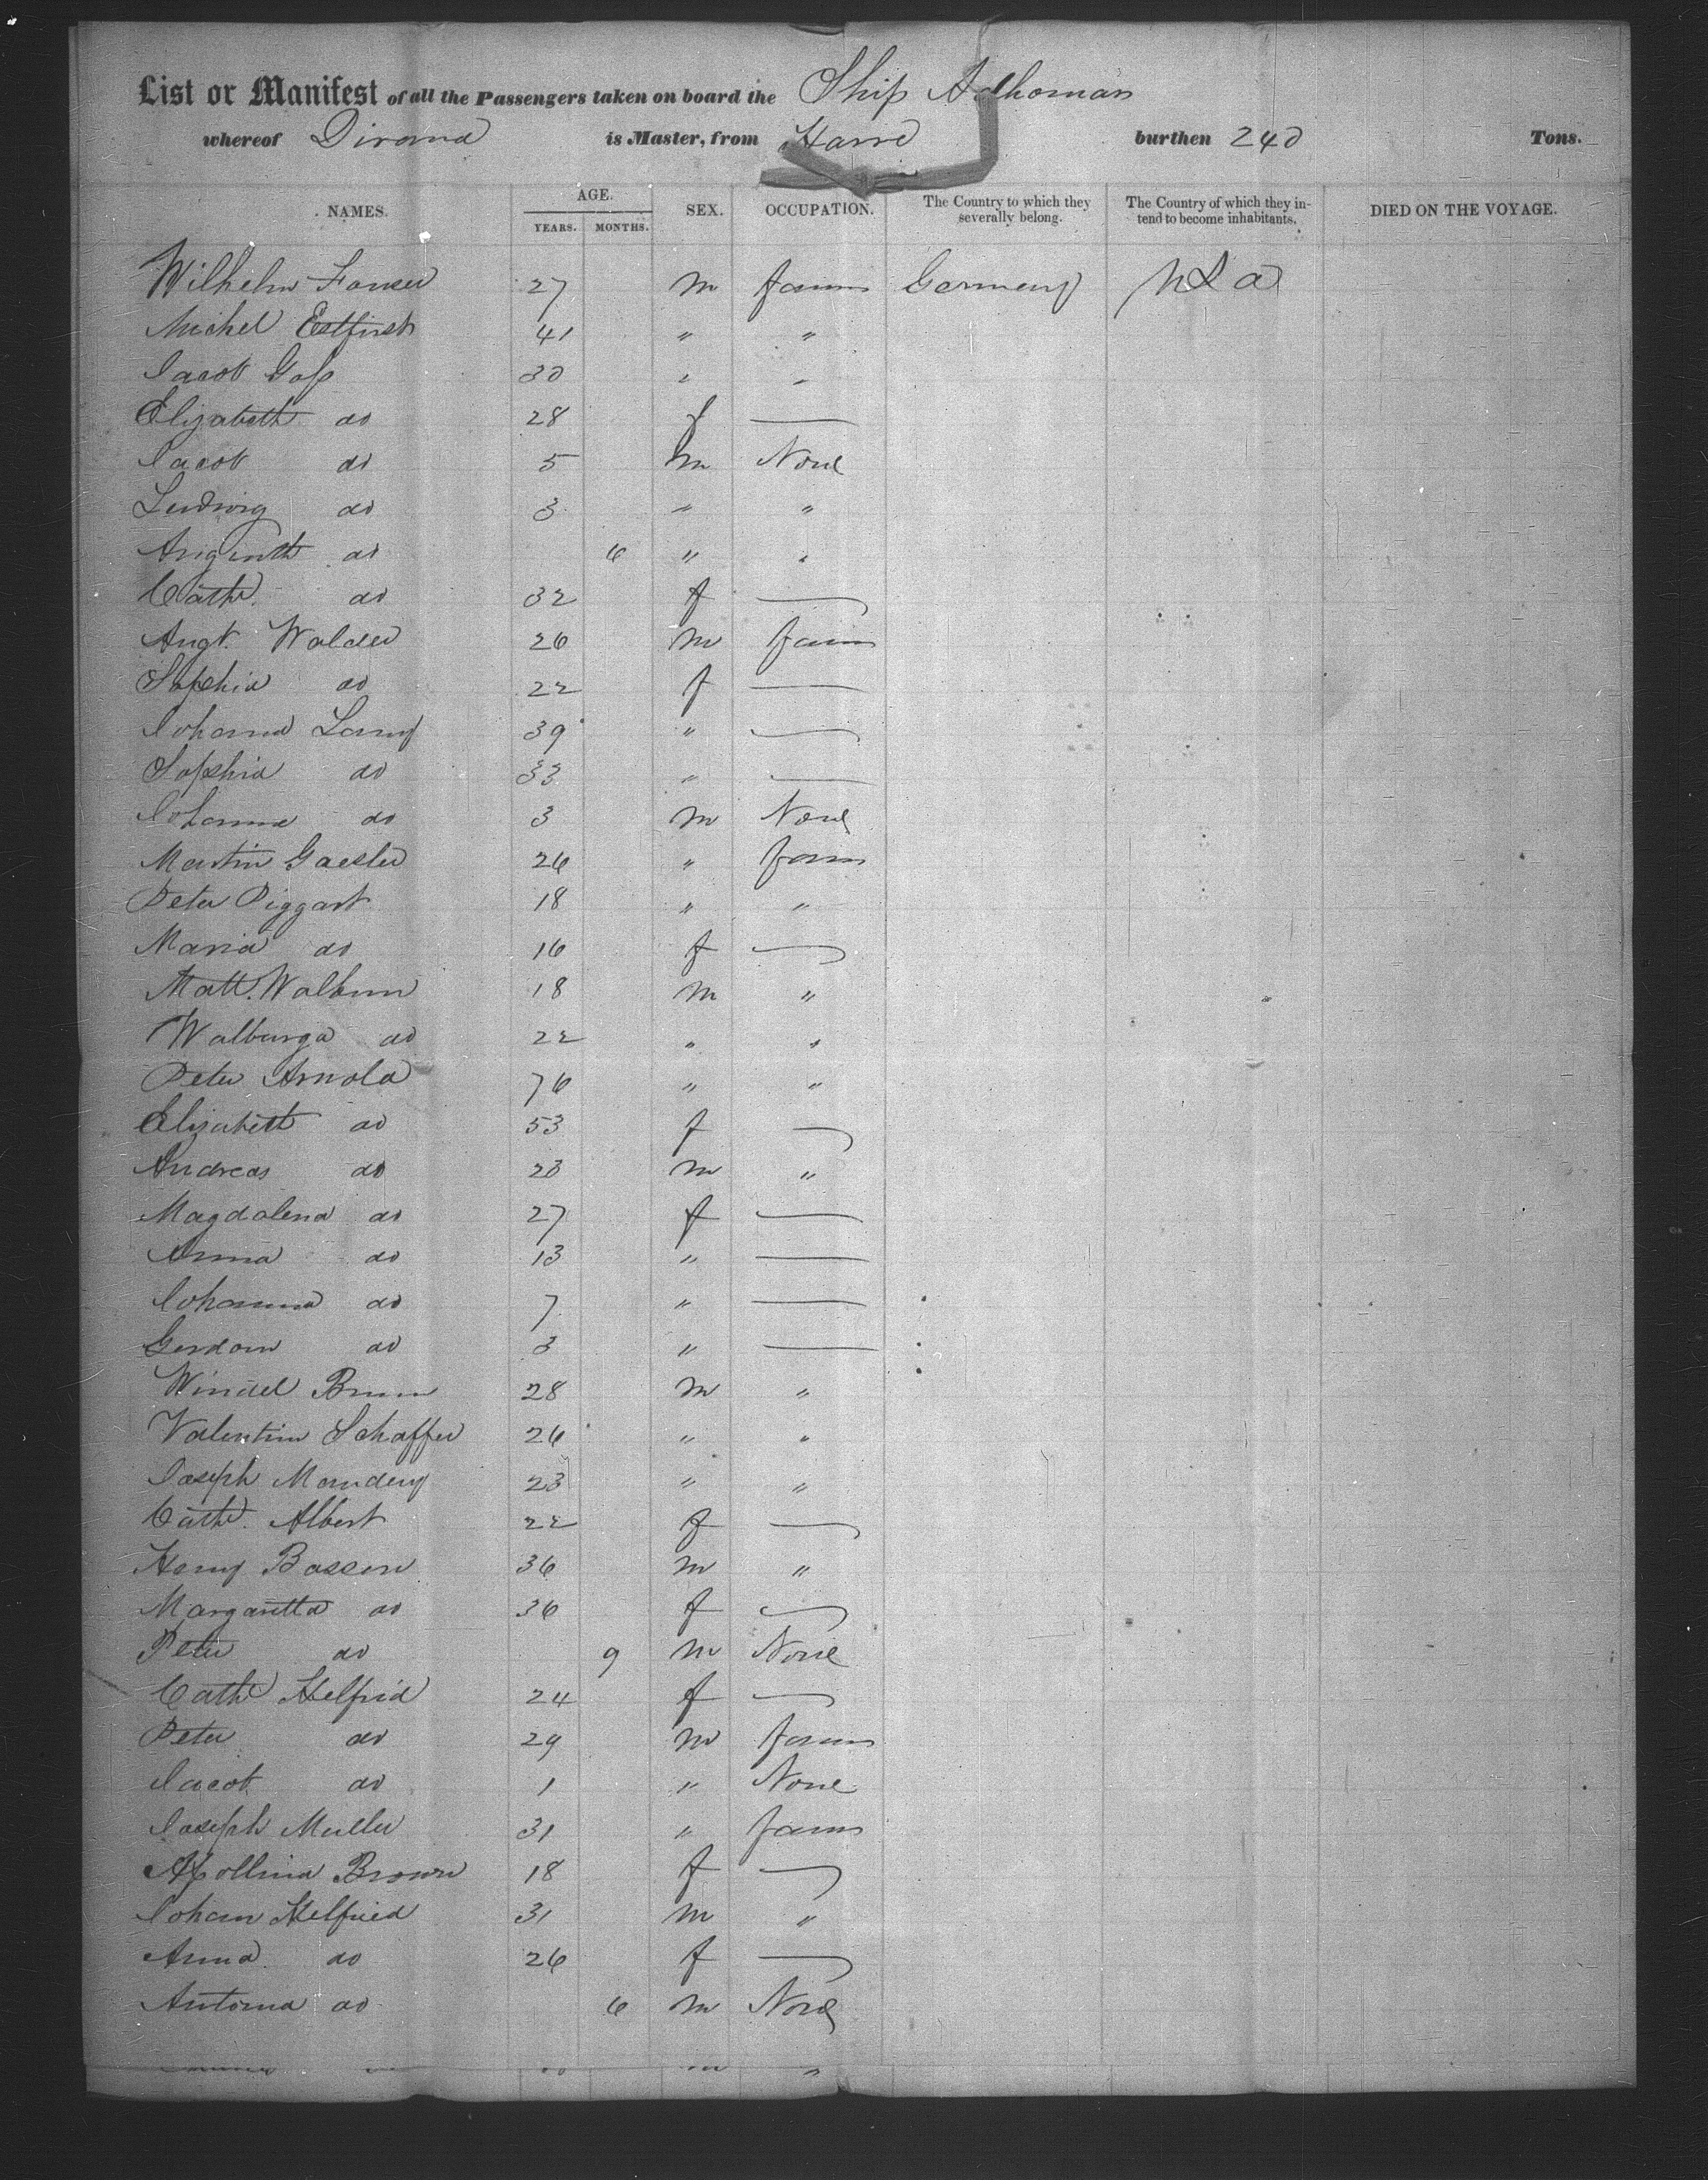 List or Manifest of all the Passengers taken on board the Ship
whereof is Master, from burthen 240 Tons.
NAMES. AGE. YEARS. MONTHS. SEX. OCCUPATION. The Country to which they severally belong. The Country of which they intend to become inhabitants. DIED ON THE VOYAGE.
Wilhelm 27 m farm Germany
Michel 41 " "
Jacob Gass 30 " "
Elizabeth do 28 f —
Jacob do 5 m None
Ludwig do 3 " "
do 6 " "
Cathe do 32 f —
Augt. Walder 26 m farm
Sophia do 22 f —
Johanna Lamy 39 " —
Sophia do 33 " —
Johanna do 3 m None
Martin Gaesler 26 " farm
Peter Piggart 18 " "
Maria do 16 f —
Matt. 18 m "
Walburga do 22 " "
Peter Arnold 76 " "
Elizabeth do 53 f —
Andreas do 23 m "
Magdalena do 27 f —
Anna do 13 " —
Johanna do 7 " —
do 3 " —
Windel 28 m "
Valentin Schaffer 26 " "
Joseph 23 " "
Cathe. Albert 22 f —
Henry 36 m "
Margaretta do 36 f —
Peter do 9 m None
Cathe Helfrid 24 f —
Peter do 29 m farm
Jacob do 1 " None
Joseph Muller 31 " farm
Apollina Brown 18 f —
Johan Helfried 31 m "
Anna do 26 f —
do 6 m None